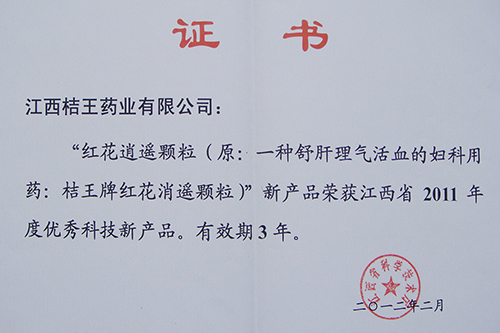 证书
江西桔王药业有限公司：
“红花逍遥颗粒（原：一种舒肝理气活血的妇科用
药：桔王牌红花消遥颗粒）”新产品荣获江西省 2011 年
度优秀科技新产品。有效期 3 年。
江西省科学技术厅
二〇一二年二月